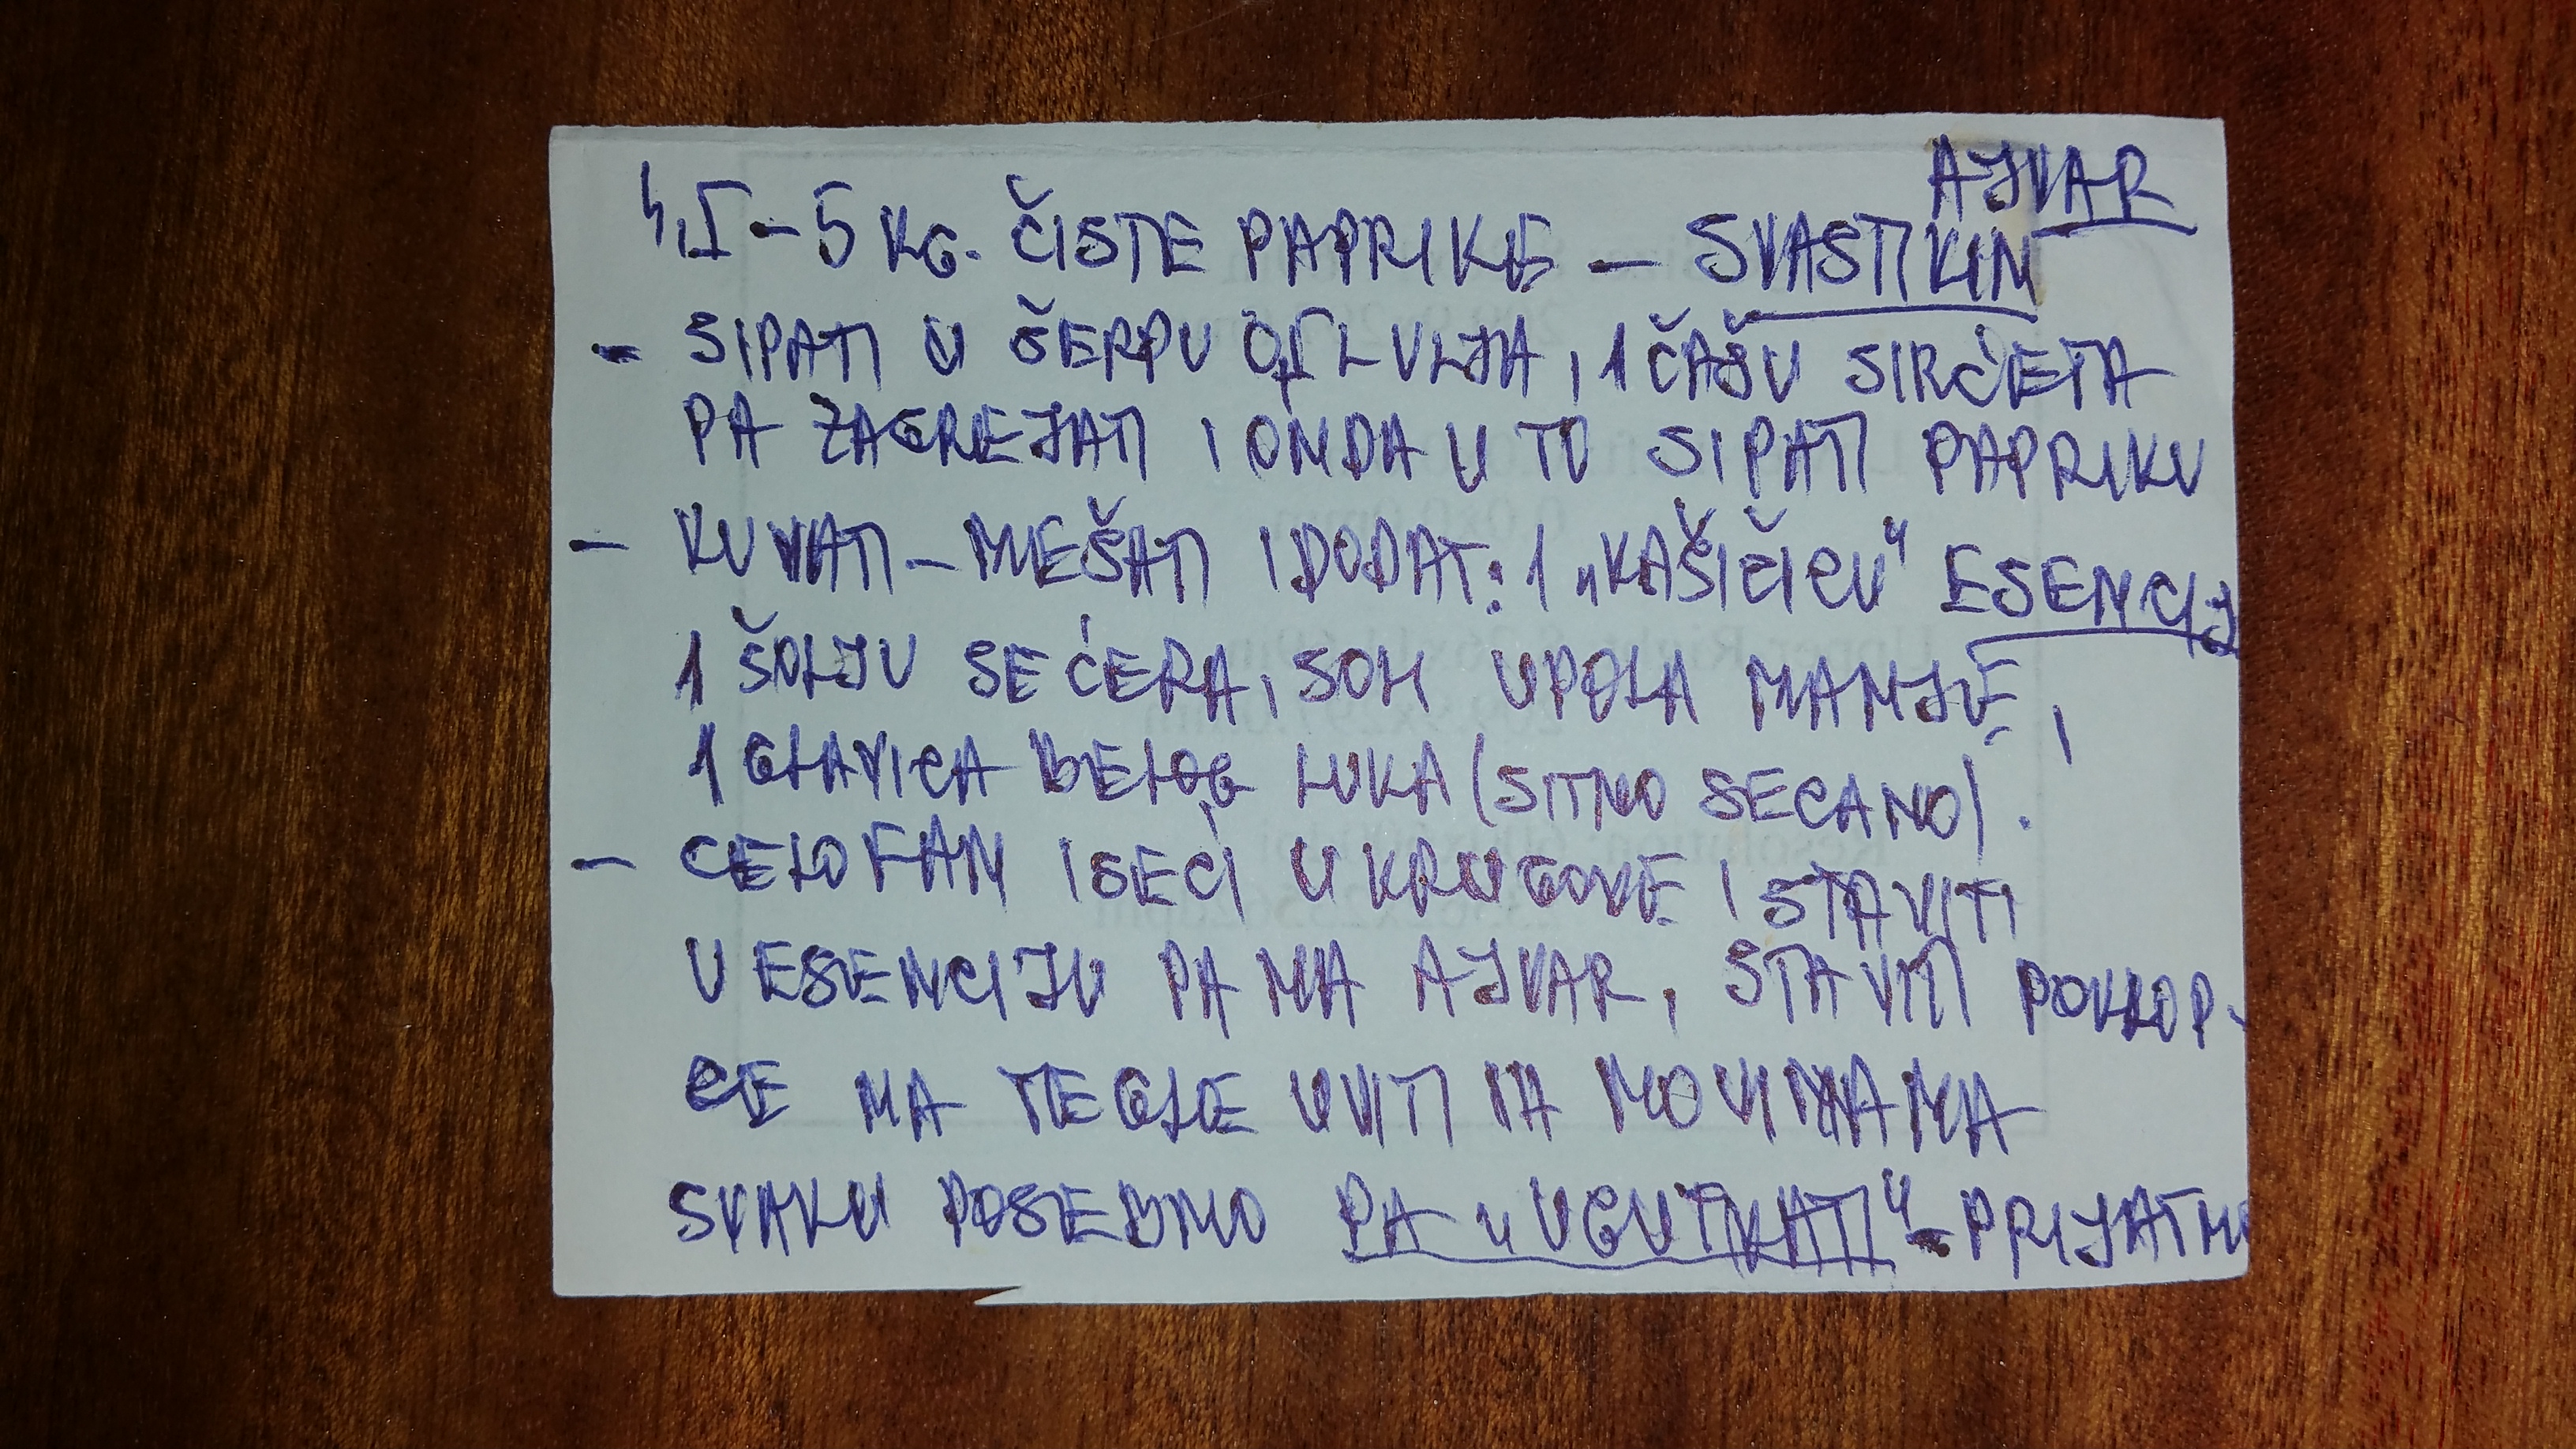 AJVAR
4,5 - 5 KG. ČISTE PAPRIKE - SVASTIKIN
• SIPATI U ŠERPU 0,5 L ULJA I 1 ČAŠU SIRĆETA
PA ZAGREJATI I ONDA U TO SIPATI PAPRIKU
- KUVATI - MEŠATI I DODATI: 1 "KAŠIČICU" ESENCIJE
1 ŠOLJU ŠEĆERA, SOK UPOLA MANJE,
1 GLAVICA BELOG LUKA (SITNO SECANO).
- CELO PAKI ISEĆI U KRUGOVE I STAVITI
U ESENCIJU PA NA AJVAR, STAVITI POKLOP.
GE NA TEGLE UVITI PA NOVINAMA
SUTRA POSEBNO PA "UGUTATI" - PRIJATNO